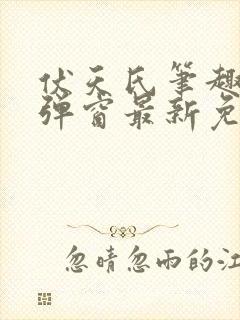 伏天氏笔趣
弹窗最新免
忽晴忽雨的江